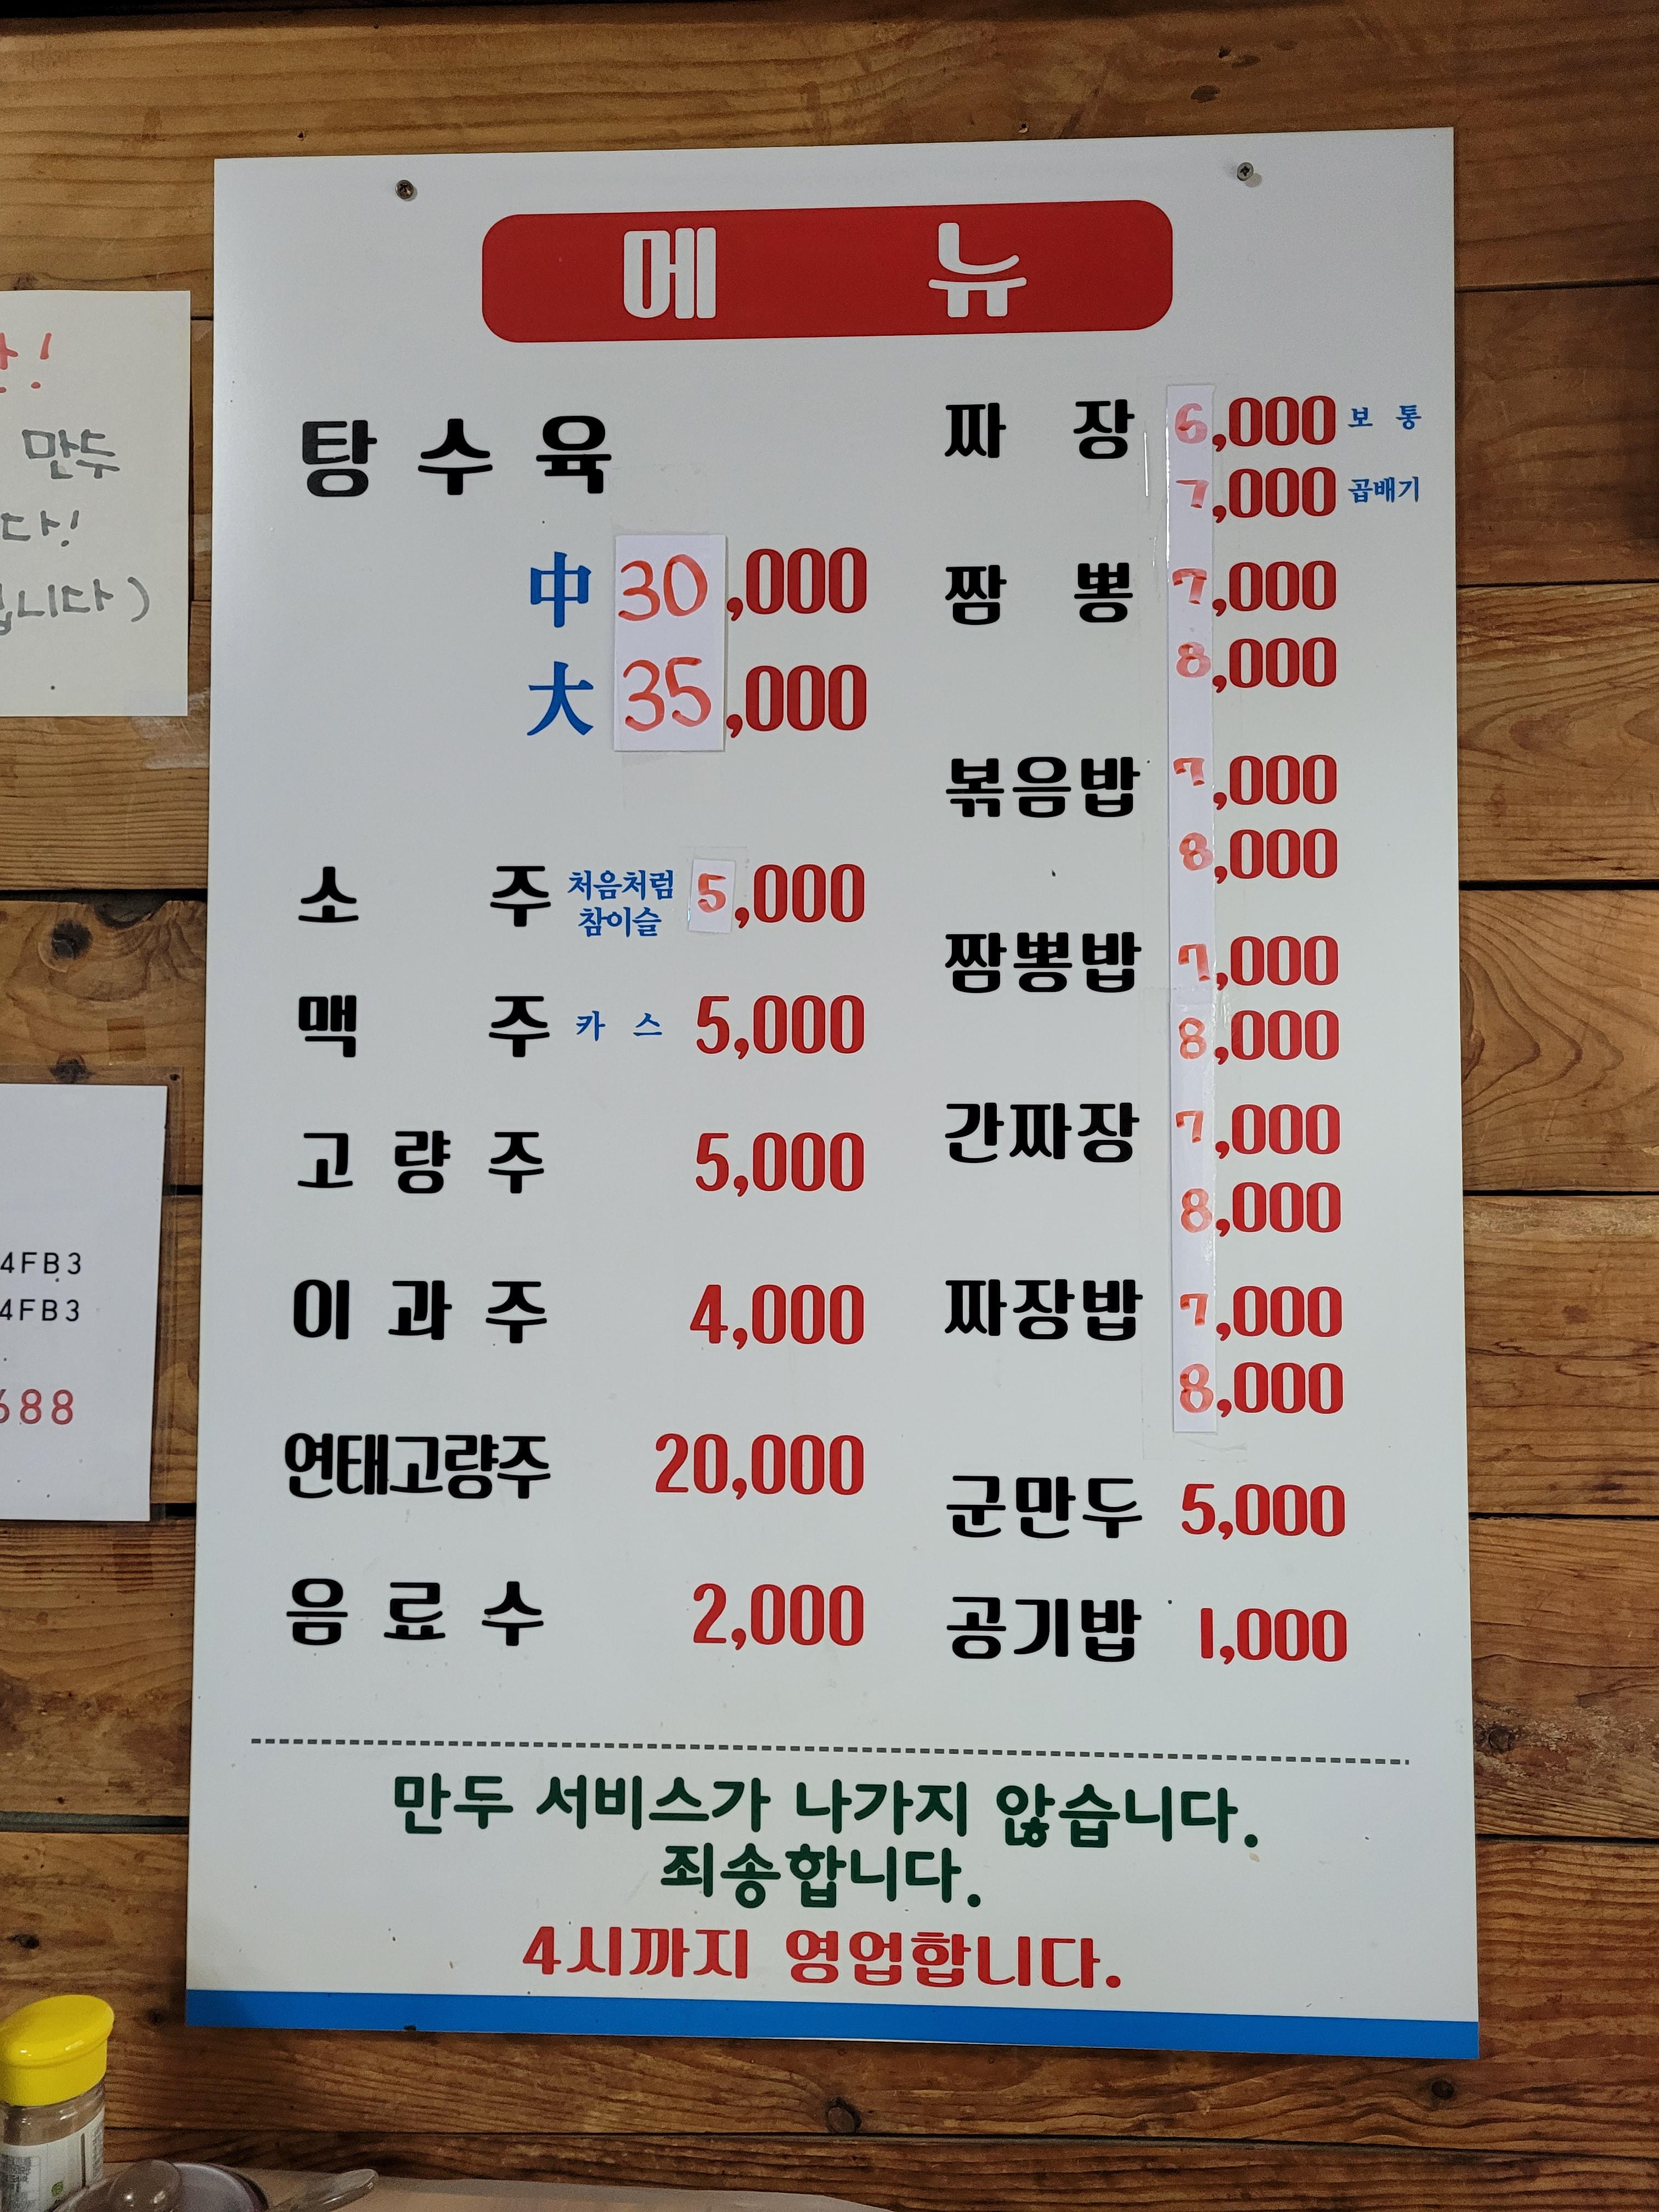 메뉴
탕수육
中 30,000
大 35,000
소주 처음처럼 참이슬 5,000
맥주 카스 5,000
고량주 5,000
이과주 4,000
연태고량주 20,000
음료수 2,000
짜장 6,000 보통
7,000 곱배기
짬뽕 7,000
8,000
볶음밥 7,000
8,000
짬뽕밥 7,000
8,000
간짜장 7,000
8,000
짜장밥 7,000
8,000
군만두 5,000
공기밥 1,000
만두 서비스가 나가지 않습니다.
죄송합니다.
4시까지 영업합니다.
만두
다!
니다)
4FB3
4FB3
688